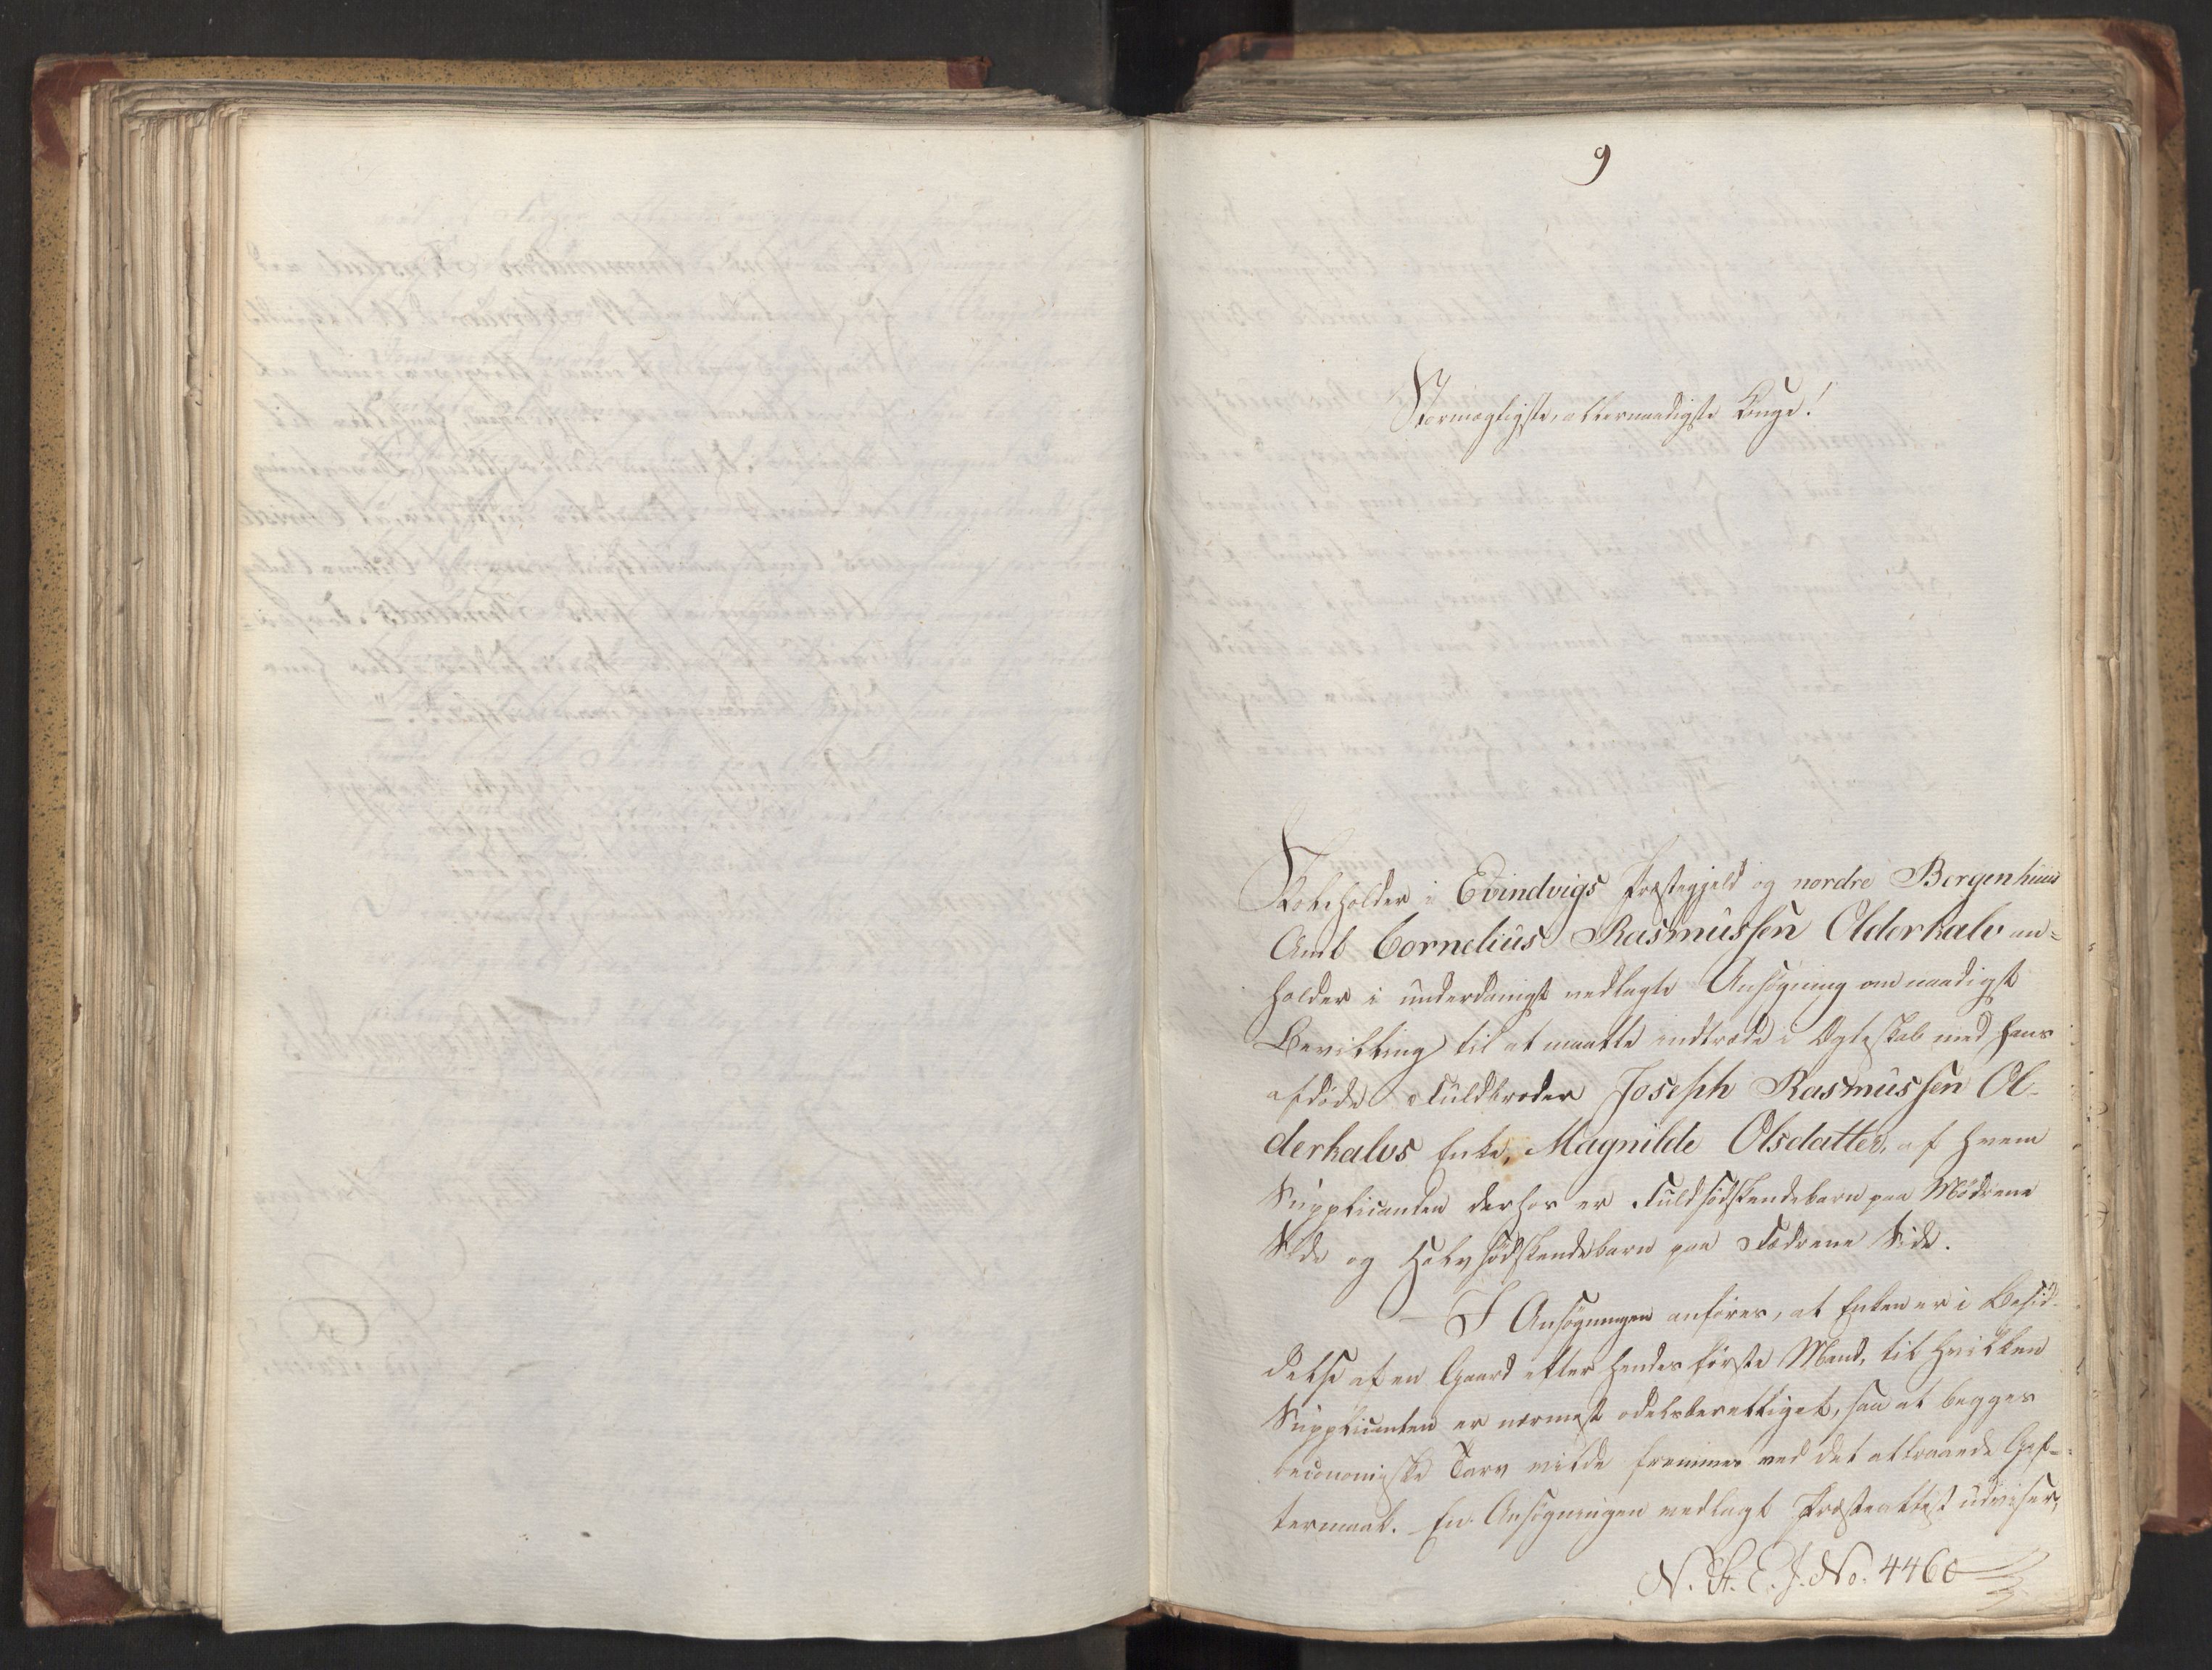 9
Stormægtigste, allernaadigste Konge!
Skoleholder i Evindvigs Præstegjeld og nordre Bergenhuus
Amt Cornelius Rasmussen Olderkalv an-
holder i underdanigst vedlagte Ansøgning om naadigst
Bevilling til at maatte indtræde i Ægteskab med hans
afdøde Fuldbroder Joseph Rasmussen Ol-
derkalvs Enke, Magnilde Olsdatter, af hvem
Supplicanten derhos er Fuldsødskendebarn paa Mødrene
Side og Halvsødskendebarn paa Fædrene Side.
– I Ansøgningen anføres, at Enken er i Besid-
delse af en Gaard efter hendes første Mand, til hvilken
Supplicanten er nærmest odelsberettiget, saa at begges
oeconomiske Tarv vilde fremmes ved det attraaede Gif-
termaal. En Ansøgningen vedlagt Præsteattest udviser,
N. St. E. J. No. 4460